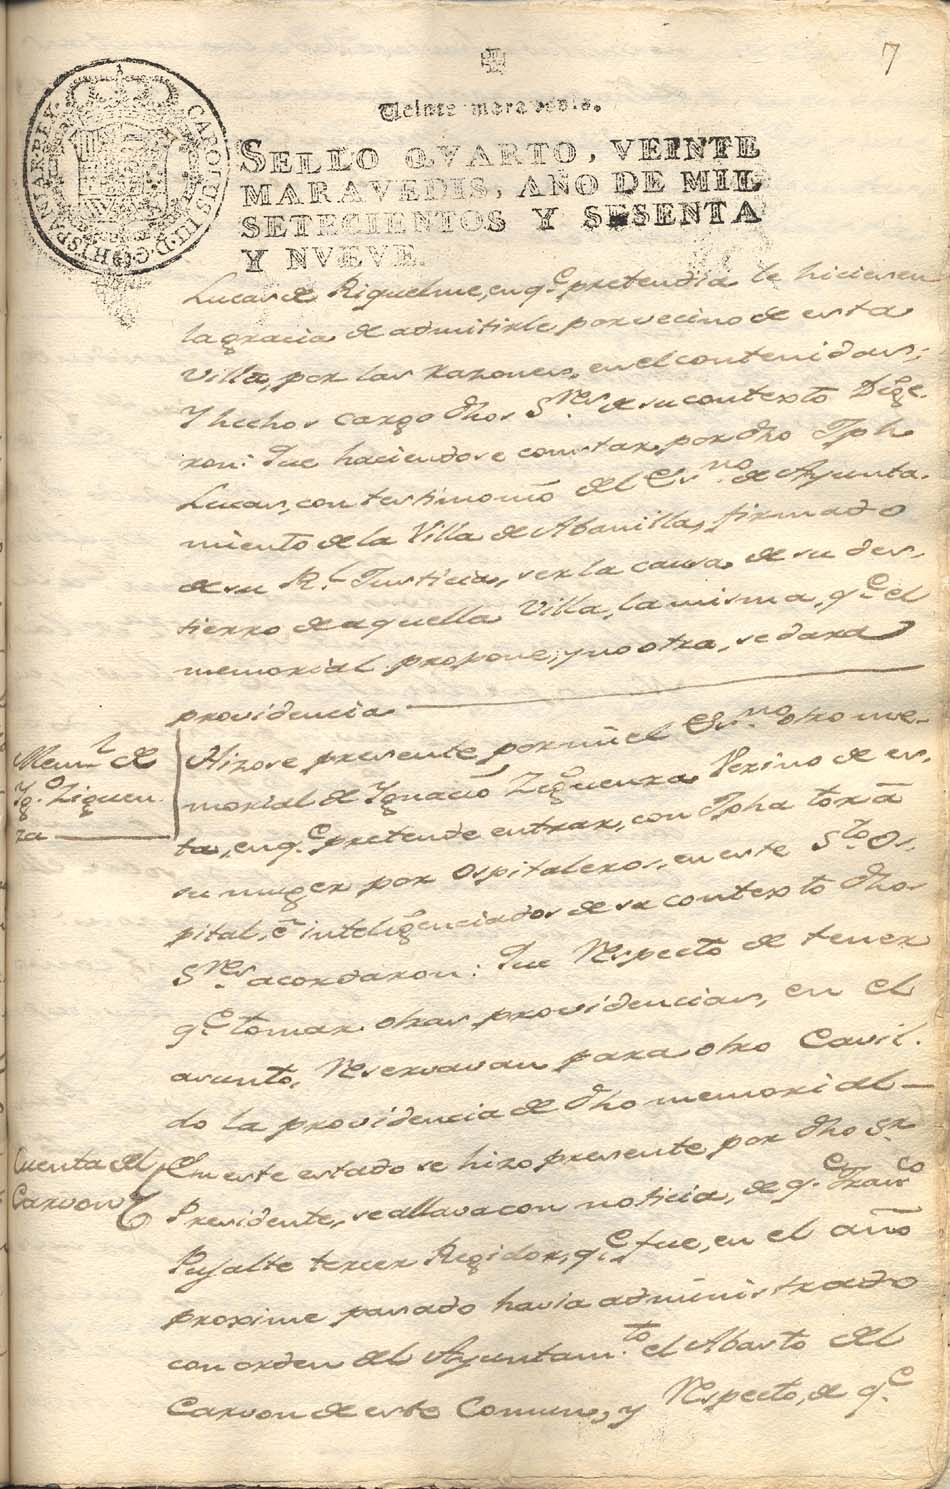 7
Veinte maravedis.
SELLO QVARTO, VEINTE
MARAVEDIS, AÑO DE MIL
SETECIENTOS Y SESENTA
Y NVEVE.
CAROLUS III·D·G·HISPANIAR·REY·
Lucas de Riquelme, en qe. pretendia le hiciesen
la gracia de admitirle por vecino de esta
Villa, por las razones, en el contenidas;
Y hechos cargo dhos Sres. de su contexto Dige-
ron: Que haciendose constar, por dho Jph
Lucas, con testimonio del Esno. de Ayunta-
miento de la Villa de Abanilla, firmado
de su Rl. Justicia, ser la causa, de su des-
tierro de aquella Villa, la misma, qe. el
memorial propone, y no otra, se dara
providencia
Meml. de
Ygo. Ziguen
za
Hizose presente por mi el Esno. otro me-
morial de Ygnacio Zeguenza Vezino de es-
ta, en qe. pretende entrar, con Jpha torã
su muger por ospitaleros, en este Sto. Os-
pital, e inteligenciados de su contexto dhos
Sres. acordaron: Que Respecto de tener
qe. tomar otras providencias, en el
asunto, Reservavan para otro Cavil-
do la providencia de dho memorial
Cuenta del
Carvon
En este estado se hizo presente por dho Sr.
Presidente, se allava con noticia, de qe. Franco
Pujalte tercer Regidor, qe. fue, en el año
proximo pasado havia administrado
con orden del Ayuntamto. el Abasto del
Carvon de este Comun, y Respecto, de qe.